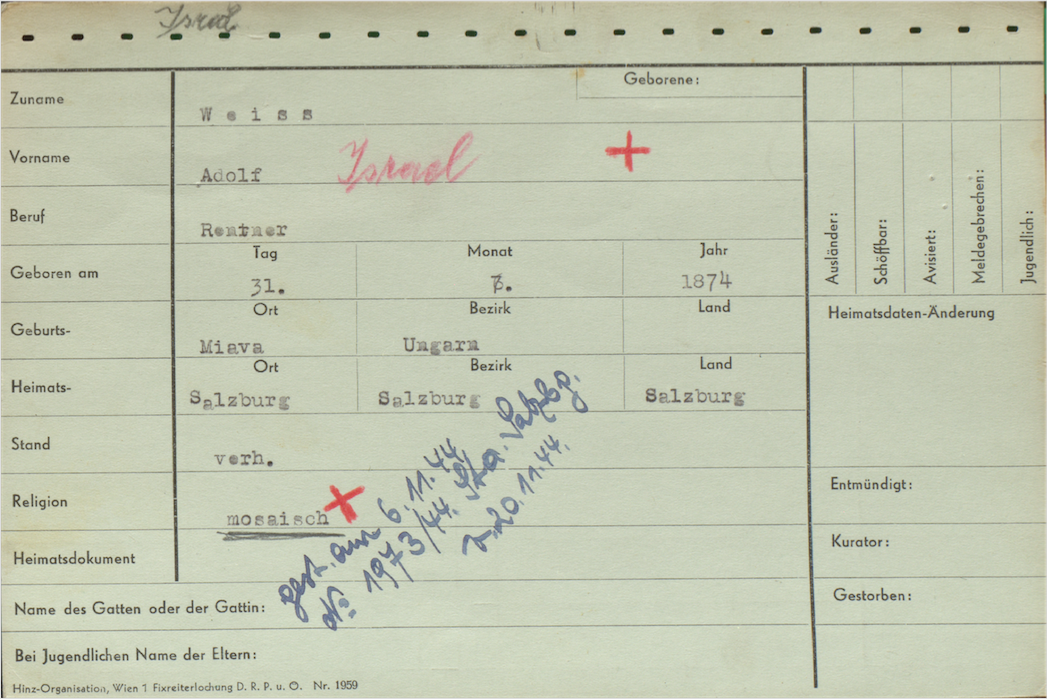 Israel
Geborene:
Zuname
Weiss
Vorname
Adolf Israel
Beruf
Rentner
Tag Monat Jahr
Geboren am
31. 1874
Ort Bezirk Land
Geburts-
Miava Ungarn
Ort Bezirk Land
Heimats-
Salzburg Salzburg Salzburg
Stand
verh.
Religion
mosaisch
Heimatsdokument
gest. am 6.11.44
No 1973/44. St. A. Salzbg.
v. 20.11.44.
Name des Gatten oder der Gattin:
Bei Jugendlichen Name der Eltern:
Hinz-Organisation, Wien 1 Fixreiterlochung D. R. P. u. O. Nr. 1959
Ausländer:
Schöffbar:
Avisiert:
Meldegebrechen:
Jugendlich:
Heimatsdaten-Änderung
Entmündigt:
Kurator:
Gestorben: